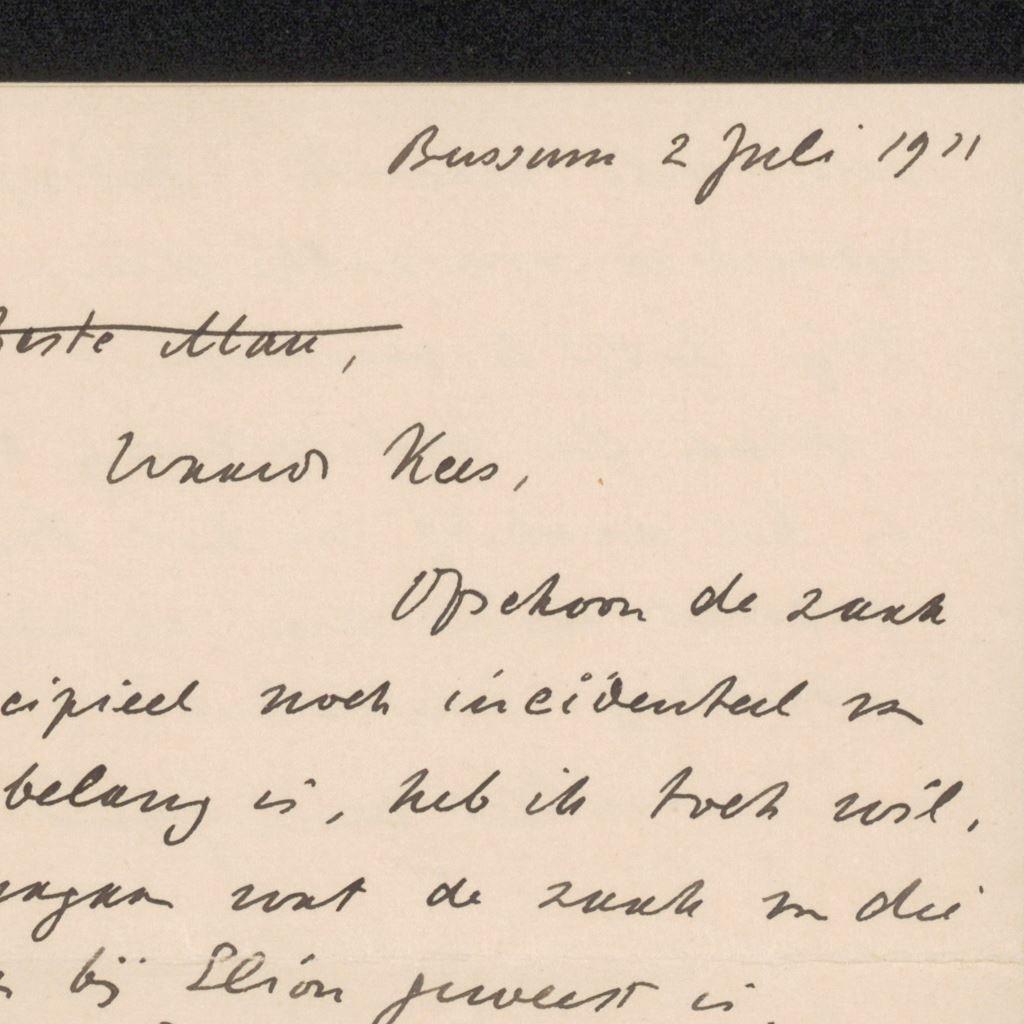 Bussum 2 Juli 1911
Beste Man,
Waarde Kees,
Ofschoon de zaak
cipieel noch incidenteel v
belang is, heb ik toch wil.
nagaan wat de zaak v die
bij Elion geweest is.